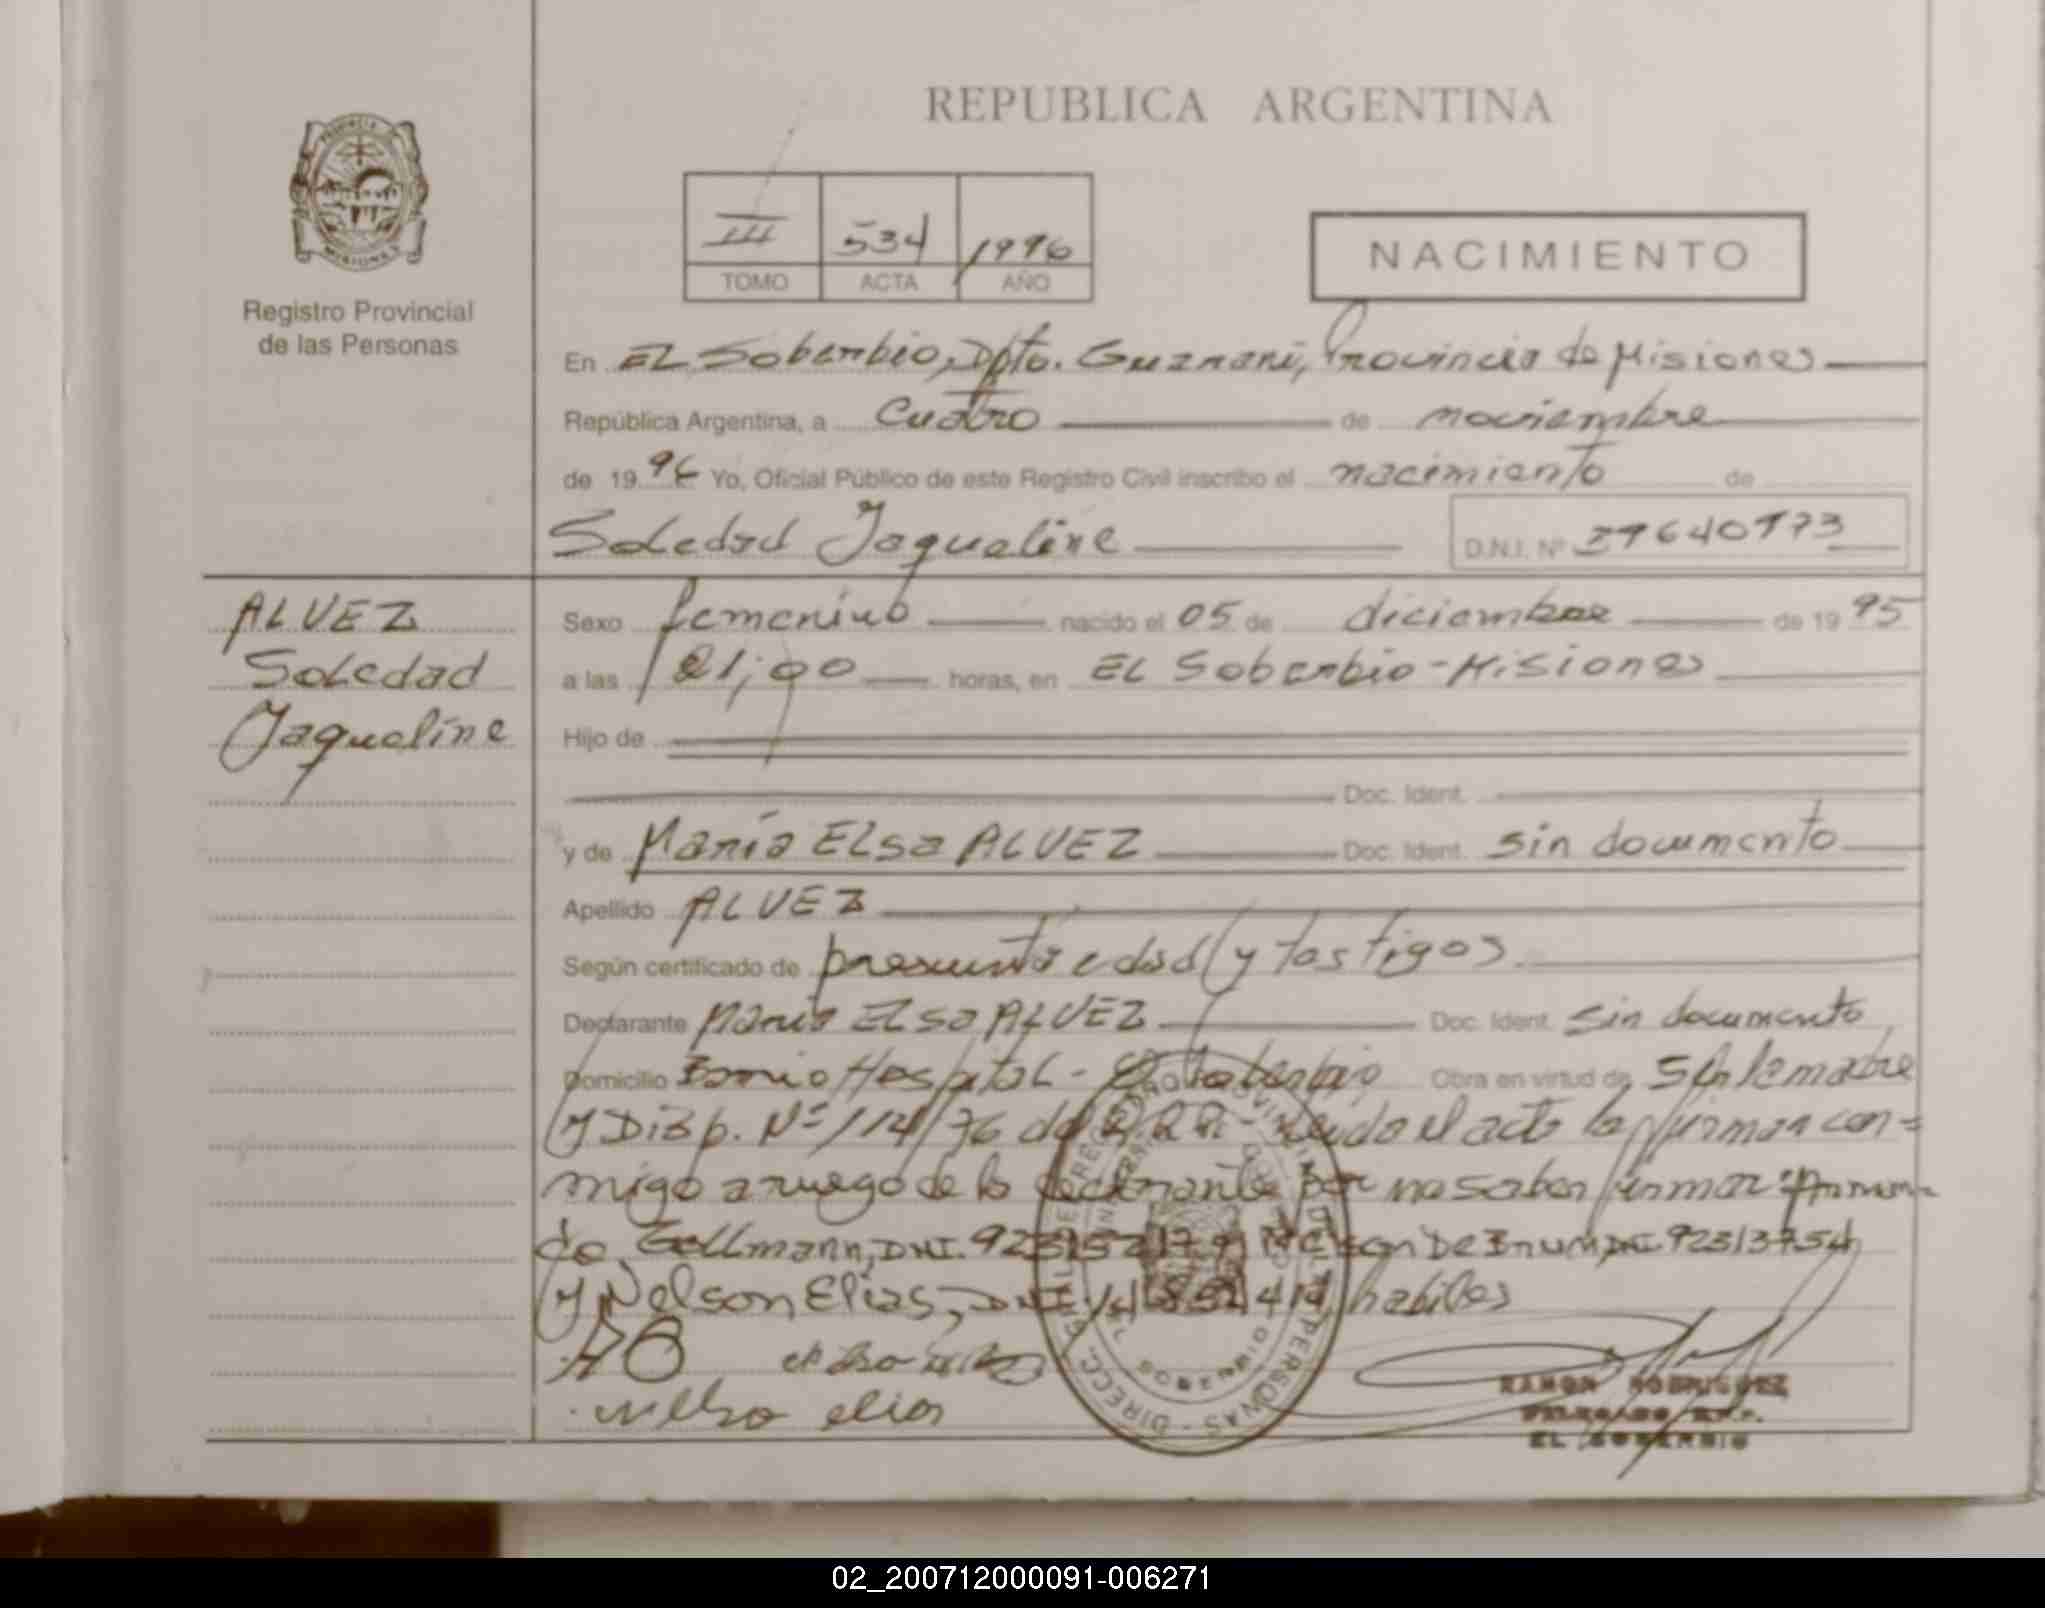 REPUBLICA ARGENTINA
PROVINCIA DE
MISIONES
Registro Provincial
de las Personas
III 534 1996
TOMO ACTA AÑO
NACIMIENTO
En EL Soberbio, Dpto. Guarani, Provincia de Misiones
República Argentina, a Cuatro de noviembre
de 1996 Yo, Oficial Público de este Registro Civil inscribo el nacimiento de
Soledad Jaqueline D.N.I. Nº
ALVEZ
Soledad
Jaqueline
Sexo femenino nacido el 05 de diciembre de 1995
a las 21,00 horas, en EL Soberbio - Misiones
Hijo de
Doc. Ident.
y de María Elsa ALVEZ Doc. Ident. sin documento
Apellido ALVEZ
Según certificado de presunta edad y testigos
Declarante María Elsa ALVEZ Doc. Ident. sin documento
Domicilio Barrio Hospital - El Soberbio Obra en virtud de la madre
y Disp. Nº 114/76 leido el acto la firman con=
migo a ruego de la declarante por no saber firmar
do Gellmann, DNI. DNI. 92313754
y Nelson Elias, DNI habiles
nelso elias
RAMON RODRIGUEZ
DELEGADO R.P.P.
EL SOBERBIO
02_200712000091-006271